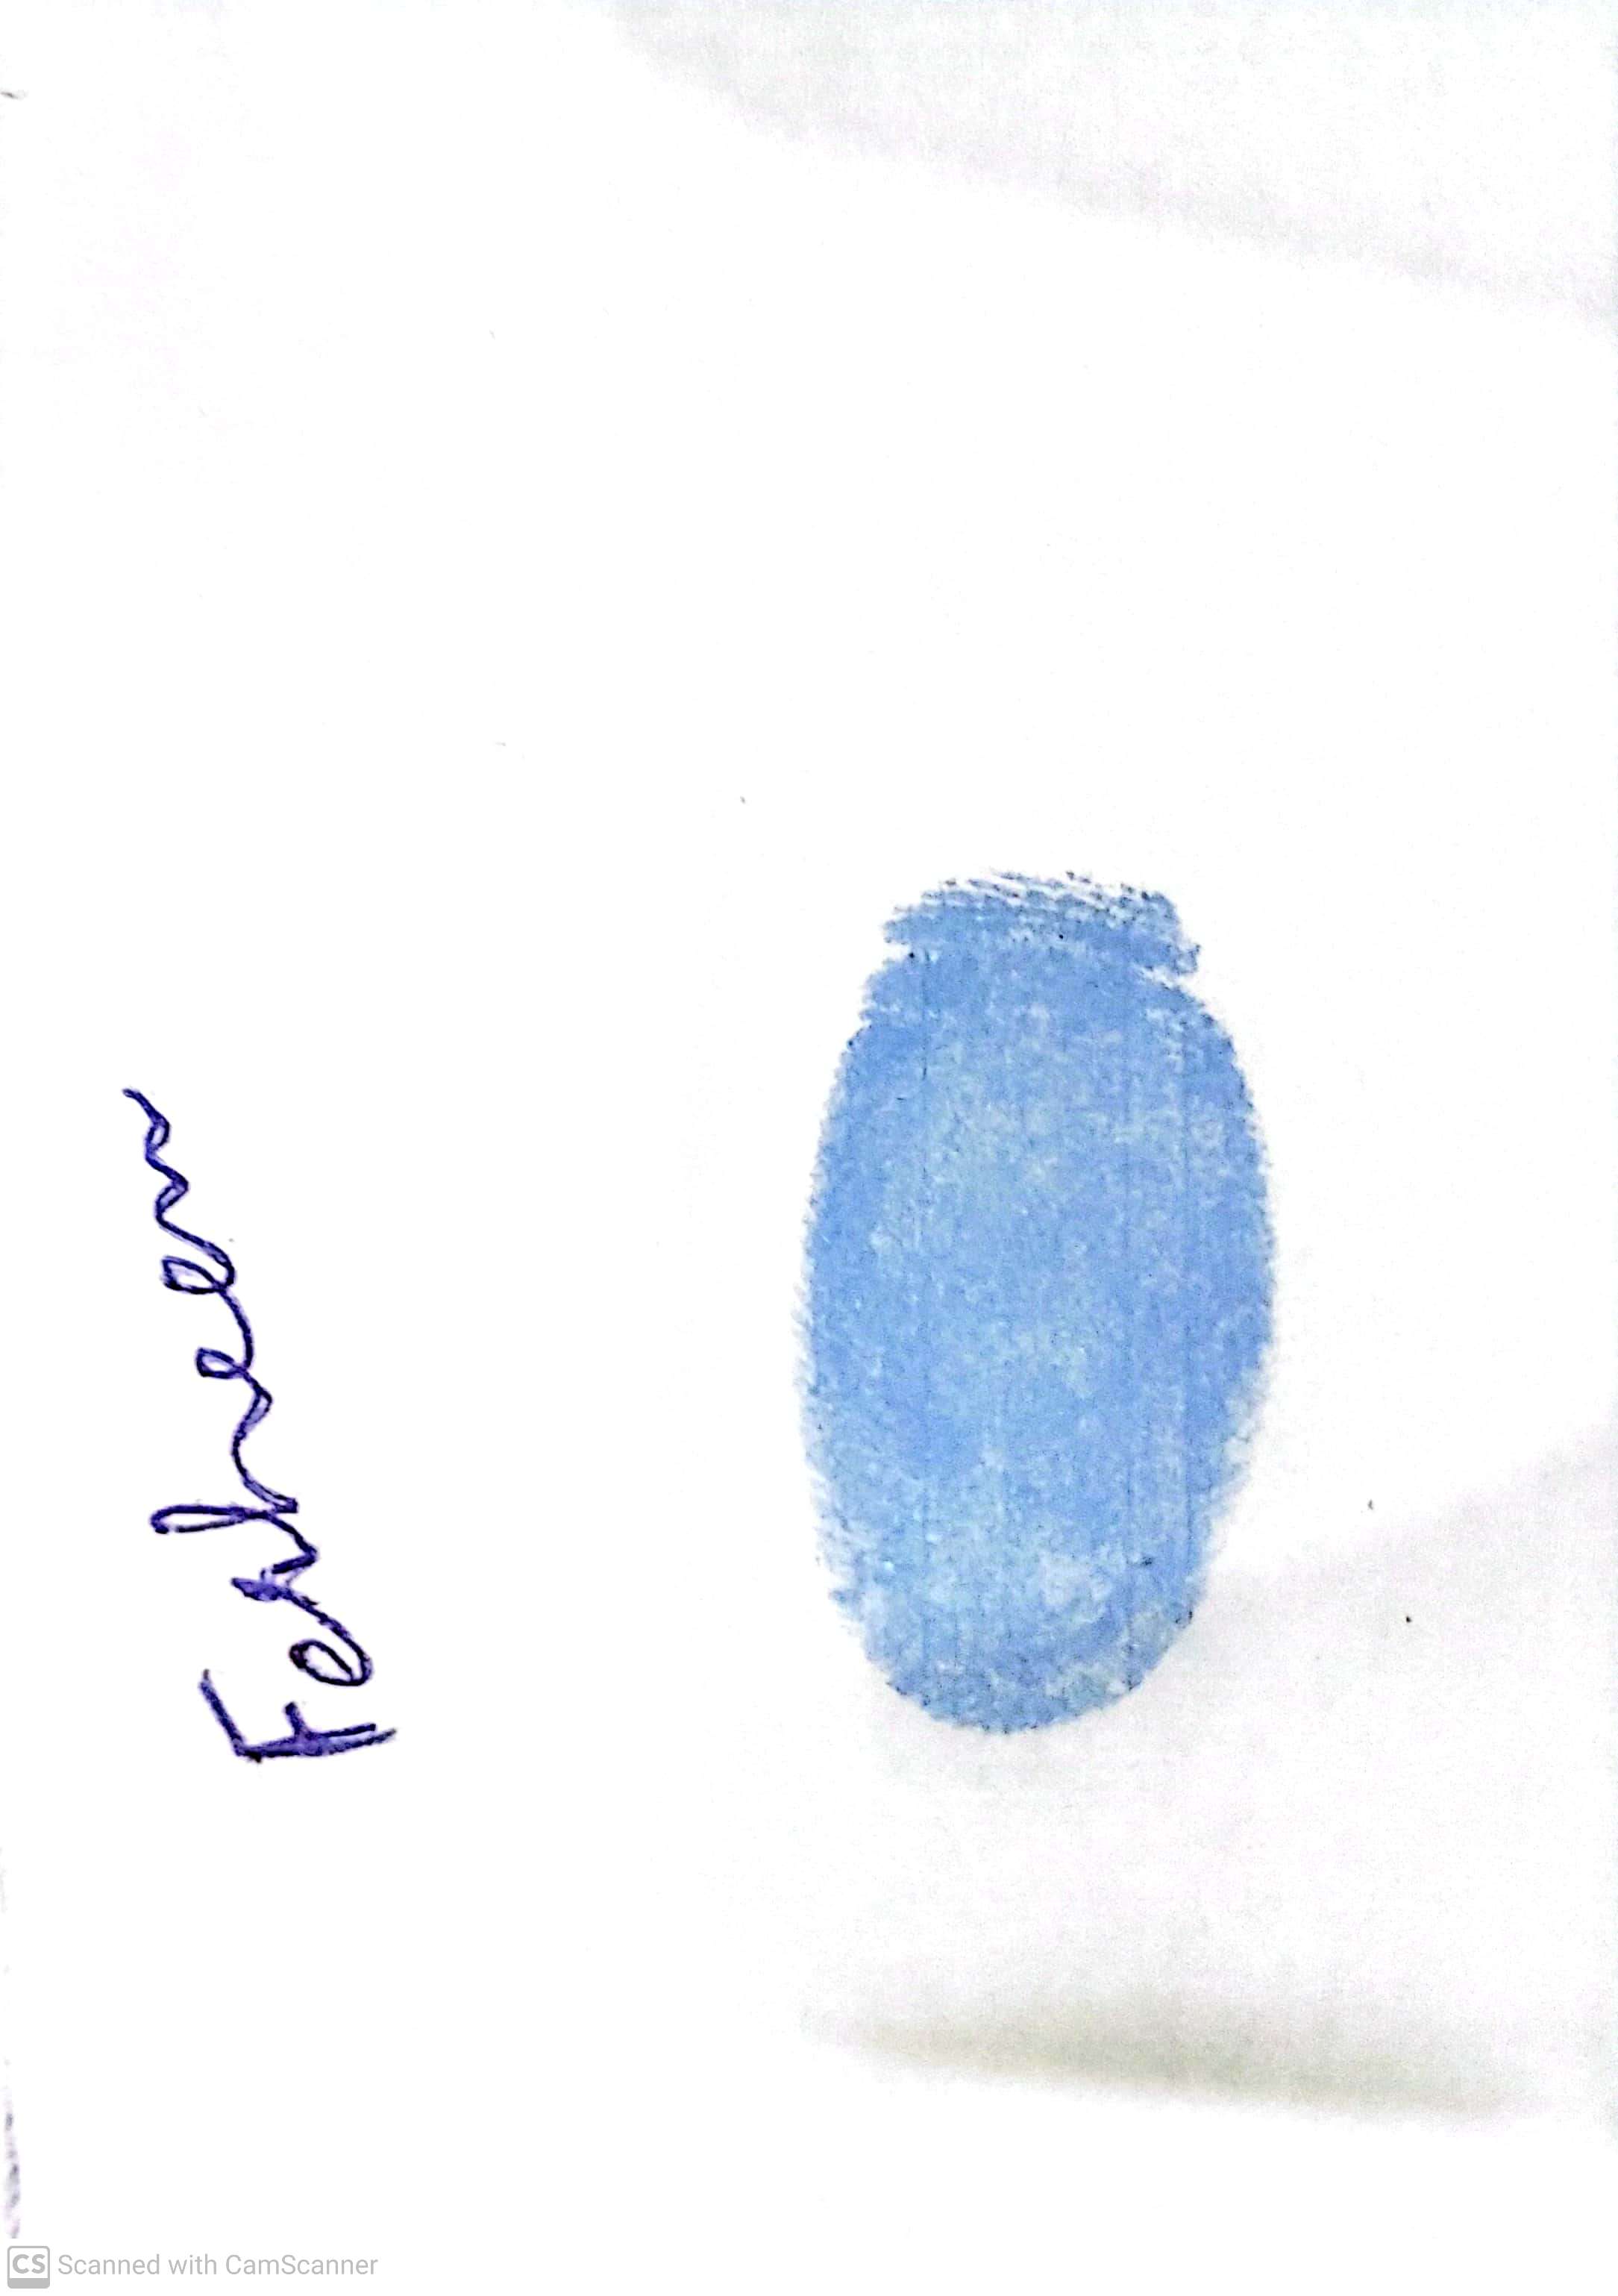 Fesheen
CS Scanned with CamScanner